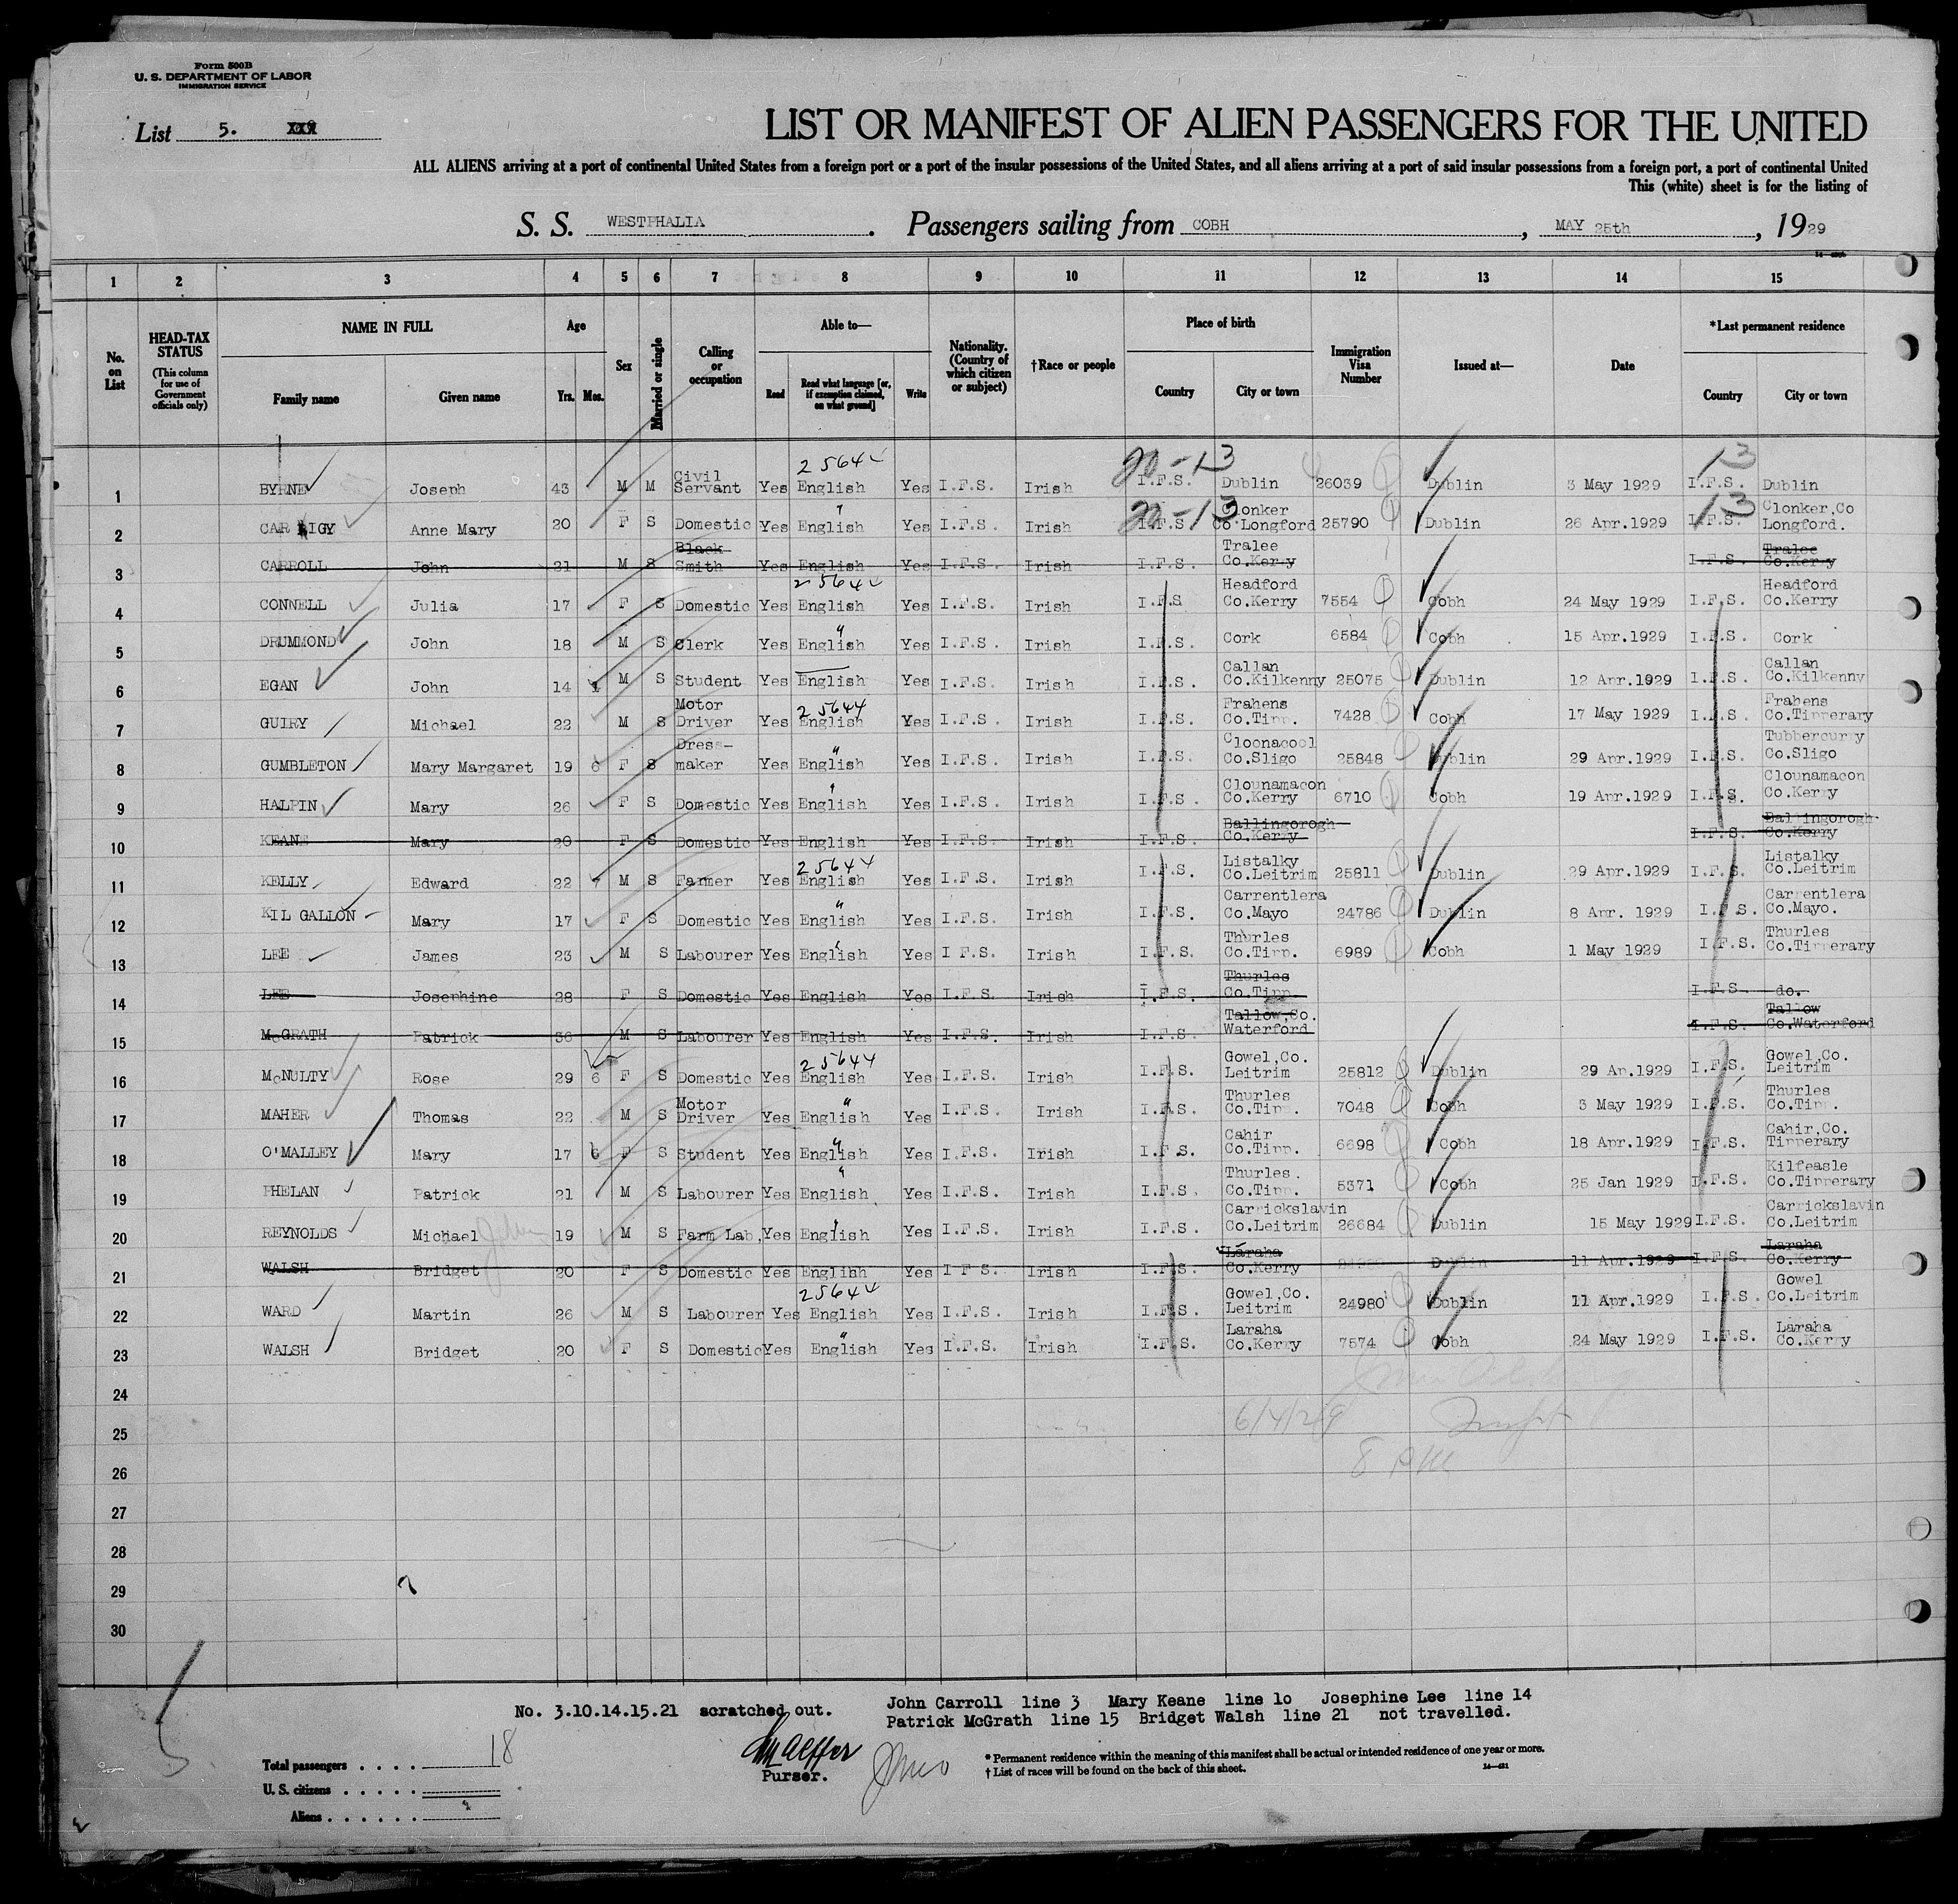 Form 500B
U. S. DEPARTMENT OF LABOR
IMMIGRATION SERVICE
List 5. XXX
LIST OR MANIFEST OF ALIEN PASSENGERS FOR THE UNITED
ALL ALIENS arriving at a port of continental United States from a foreign port or a port of the insular possessions of the United States, and all aliens arriving at a port of said insular possessions from a foreign port, a port of continental United
This (white) sheet is for the listing of
S. S. WESTPHALIA. Passengers sailing from COBH, MAY 25th, 1929
1 2 3 4 5 6 7 8 9 10 11 12 13 14 15
No. on List HEAD-TAX STATUS (This column for use of Government officials only) NAME IN FULL Family name Given name Age Yrs. Mos. Sex Married or single Calling or occupation Able to— Read Read what language [or, if exemption claimed, on what ground] Write Nationality. (Country of which citizen or subject) †Race or people Place of birth Country City or town Immigration Visa Number Issued at— Date *Last permanent residence Country City or town
25644 20-13 13
1 BYRNE Joseph 43 M M Civil Servant Yes English Yes I.F.S. Irish I.F.S. Dublin 26039 Dublin 3 May 1929 I.F.S. Dublin
20-13 13
2 CARRIGY Anne Mary 20 F S Domestic Yes English Yes I.F.S. Irish I.F.S. Clonker Co Longford 25790 Dublin 26 Apr.1929 I.F.S. Clonker,Co Longford.
3 CARROLL John 21 M S Black Smith Yes English Yes I.F.S. Irish I.F.S. Tralee Co.Kerry I.F.S. Tralee Co.Kerry
25644
4 CONNELL Julia 17 F S Domestic Yes English Yes I.F.S. Irish I.F.S Headford Co.Kerry 7554 Cobh 24 May 1929 I.F.S. Headford Co.Kerry
5 DRUMMOND John 18 M S Clerk Yes English Yes I.F.S. Irish I.F.S. Cork 6584 Cobh 15 Apr.1929 I.F.S. Cork
6 EGAN John 14 1 M S Student Yes English Yes I.F.S. Irish I.F.S. Callan Co.Kilkenny 25075 Dublin 12 Apr.1929 I.F.S. Callan Co.Kilkenny
25644
7 GUIRY Michael 22 M S Motor Driver Yes English Yes I.F.S. Irish I.F.S. Frahens Co.Tipp. 7428 Cobh 17 May 1929 I.F.S. Frahens Co.Tipperary
8 GUMBLETON Mary Margaret 19 6 F S Dress- maker Yes English Yes I.F.S. Irish I.F.S. Cloonacool Co.Sligo 25848 Dublin 29 Apr.1929 I.F.S. Tubbercurry Co.Sligo
9 HALPIN Mary 26 F S Domestic Yes English Yes I.F.S. Irish I.F.S. Clounamacon Co.Kerry 6710 Cobh 19 Apr.1929 I.F.S. Clounamacon Co.Kerry
10 KEANE Mary 20 F S Domestic Yes English Yes I.F.S. Irish I.F.S. Ballingorogh Co.Kerry I.F.S. Ballingorogh Co.Kerry
25644
11 KELLY Edward 22 7 M S Farmer Yes English Yes I.F.S. Irish I.F.S. Listalky Co.Leitrim 25811 Dublin 29 Apr.1929 I.F.S. Listalky Co.Leitrim
12 KIL GALLON Mary 17 F S Domestic Yes English Yes I.F.S. Irish I.F.S. Carrentlera Co.Mayo 24786 Dublin 8 Apr. 1929 I.F.S. Carrentlera Co.Mayo.
13 LEE James 23 M S Labourer Yes English Yes I F.S. Irish I.F.S. Thurles Co.Tipp. 6989 Cobh 1 May 1929 I.F.S. Thurles Co.Tipperary
14 LEE Josephine 28 F S Domestic Yes English Yes I.F.S. Irish I.F.S. Thurles Co.Tipp. I.F.S. do.
15 McGRATH Patrick 30 M S Labourer Yes English Yes I.F.S. Irish I.F.S. Tallow,Co. Waterford I.F.S. Tallow Co.Waterford
25644
16 McNULTY Rose 29 6 F S Domestic Yes English Yes I.F.S. Irish I.F.S. Gowel,Co. Leitrim 25812 Dublin 29 Ap.1929 I.F.S. Gowel,Co. Leitrim
17 MAHER Thomas 22 M S Motor Driver Yes English Yes I.F.S. Irish I.F.S. Thurles Co.Tipp. 7048 Cobh 3 May 1929 I.F.S. Thurles Co.Tipp.
18 O'MALLEY Mary 17 6 F S Student Yes English Yes I.F.S. Irish I.F.S. Cahir Co.Tipp. 6698 Cobh 18 Apr.1929 I.F.S. Cahir,Co. Tipperary
19 PHELAN Patrick 21 M S Labourer Yes English Yes I.F.S. Irish I.F.S. Thurles. Co.Tipp. 5371 Cobh 25 Jan 1929 I.F.S. Kilfeasle Co.Tipperary
20 REYNOLDS Michael John 19 M S Farm Lab. Yes English Yes I.F.S. Irish I.F.S. Carrickslavin Co.Leitrim 26684 Dublin 15 May 1929 I.F.S. Carrickslavin Co.Leitrim
21 WALSH Bridget 20 F S Domestic Yes English Yes I F S. Irish I.F.S. Laraha Co.Kerry Dublin 11 Apr.1929 I.F.S. Laraha Co.Kerry
25644
22 WARD Martin 26 M S Labourer Yes English Yes I.F.S. Irish I.F.S. Gowel,Co. Leitrim 24980 Dublin 11 Apr.1929 I.F.S. Gowel Co.Leitrim
23 WALSH Bridget 20 F S Domestic Yes English Yes I.F.S. Irish I.F.S. Laraha Co.Kerry 7574 Cobh 24 May 1929 I.F.S. Laraha Co.Kerry
24
25 6/4/29
26 8 PM
27
28
29
30
No. 3.10.14.15.21 scratched out. John Carroll line 3 Mary Keane line 10 Josephine Lee line 14
Patrick McGrath line 15 Bridget Walsh line 21 not travelled.
Total passengers . . . . 18
U. S. citizens . . . . .
Aliens . . . . . .
Purser.
* Permanent residence within the meaning of this manifest shall be actual or intended residence of one year or more.
† List of races will be found on the back of this sheet.